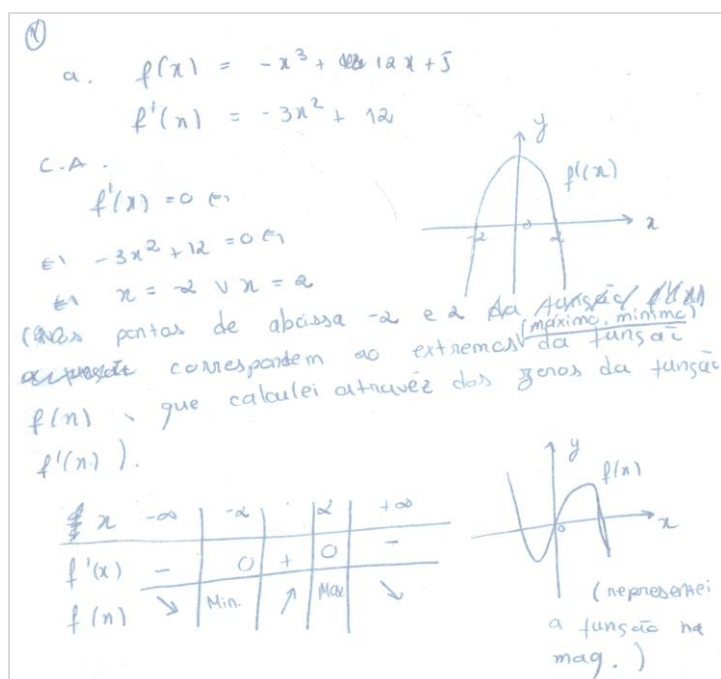 a. f(x) = -x³ + 12x + 5
f'(x) = -3x² + 12
C.A.
f'(x) = 0 ⇔
⇔ -3x² + 12 = 0 ⇔
⇔ x = -2 ∨ x = 2
y
f'(x)
-2 0 2 x
(Os pontos de abcissa -2 e 2 da função f'(x)
correspondem ao extremos (máximo, mínimo) da função
f(x), que calculei atravéz dos zeros da função
f'(x)).
x -∞ -2 2 +∞
f'(x) - 0 + 0 -
f(x) ↘ Min. ↗ Max ↘
y
f(x)
0 x
(representei
a função na
maq.)